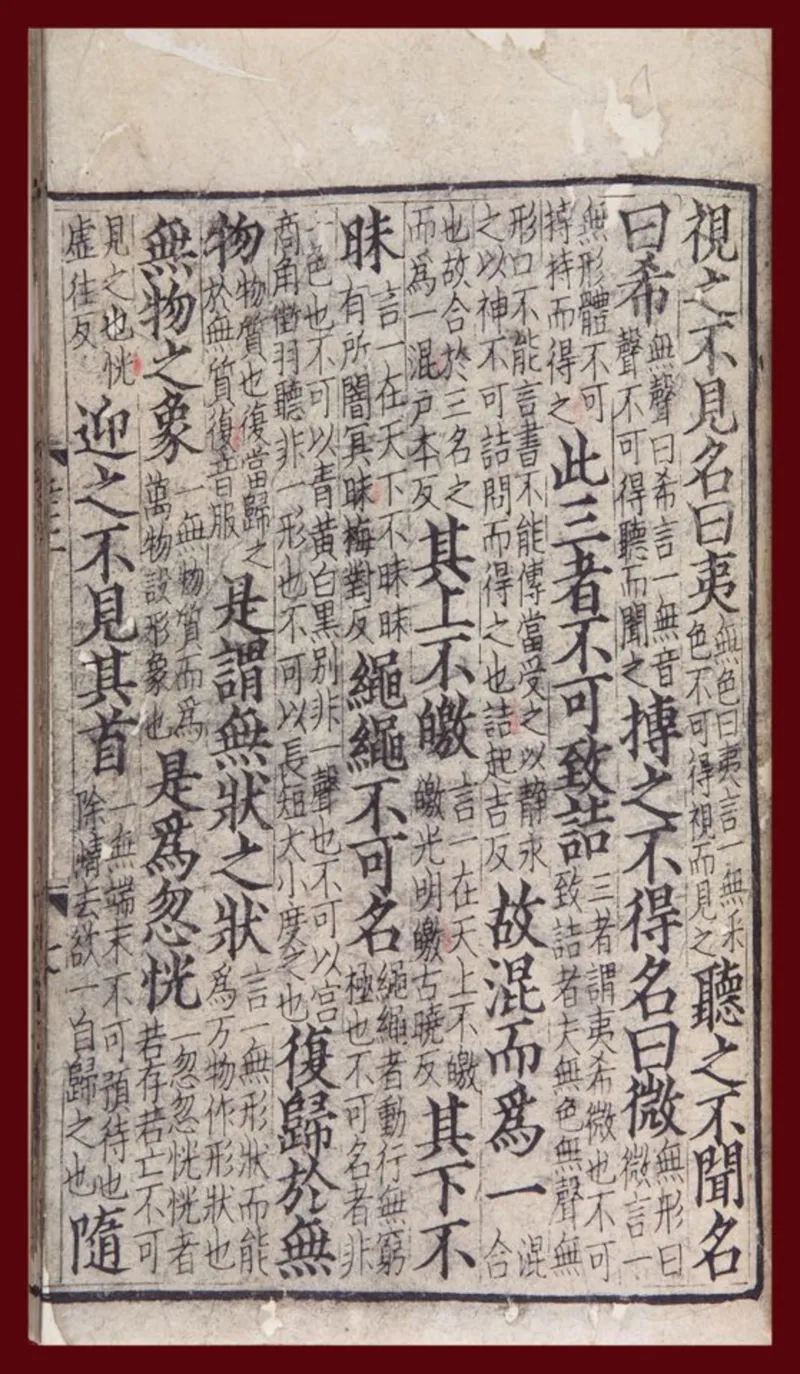 視之不見名曰夷無色曰夷言一無采色不可得視而見之聽之不聞名
曰希無聲曰希言一無音聲不可得聽而聞之搏之不得名曰微無形曰微言一
無形體不可搏持而得之此三者不可致詰三者謂夷希微也不可致詰者夫無色無聲無
形口不能言書不能傳當受之以靜求之以神不可詰問而得之也詰起吉反故混而爲一混合
也故合於三名之而爲一混戸本反其上不皦言一在天上不皦皦光明皦古曉反其下不
昧言一在天下不昧昧有所闇冥昧梅對反繩繩不可名繩繩者動行無窮極也不可名者非
一色也不可以青黃白黑別非一聲也不可以宮商角徵羽聽非一形也不可以長短大小度之也復歸於無
物物質也復當歸之於無質復音服是謂無狀之狀言一無形狀而能爲万物作形狀也
無物之象一無物質而爲萬物設形象也是爲忽恍一忽忽恍恍者若存若亡不可
見之也恍虛往反迎之不見其首一無端末不可預待也除情去欲一自歸之也隨